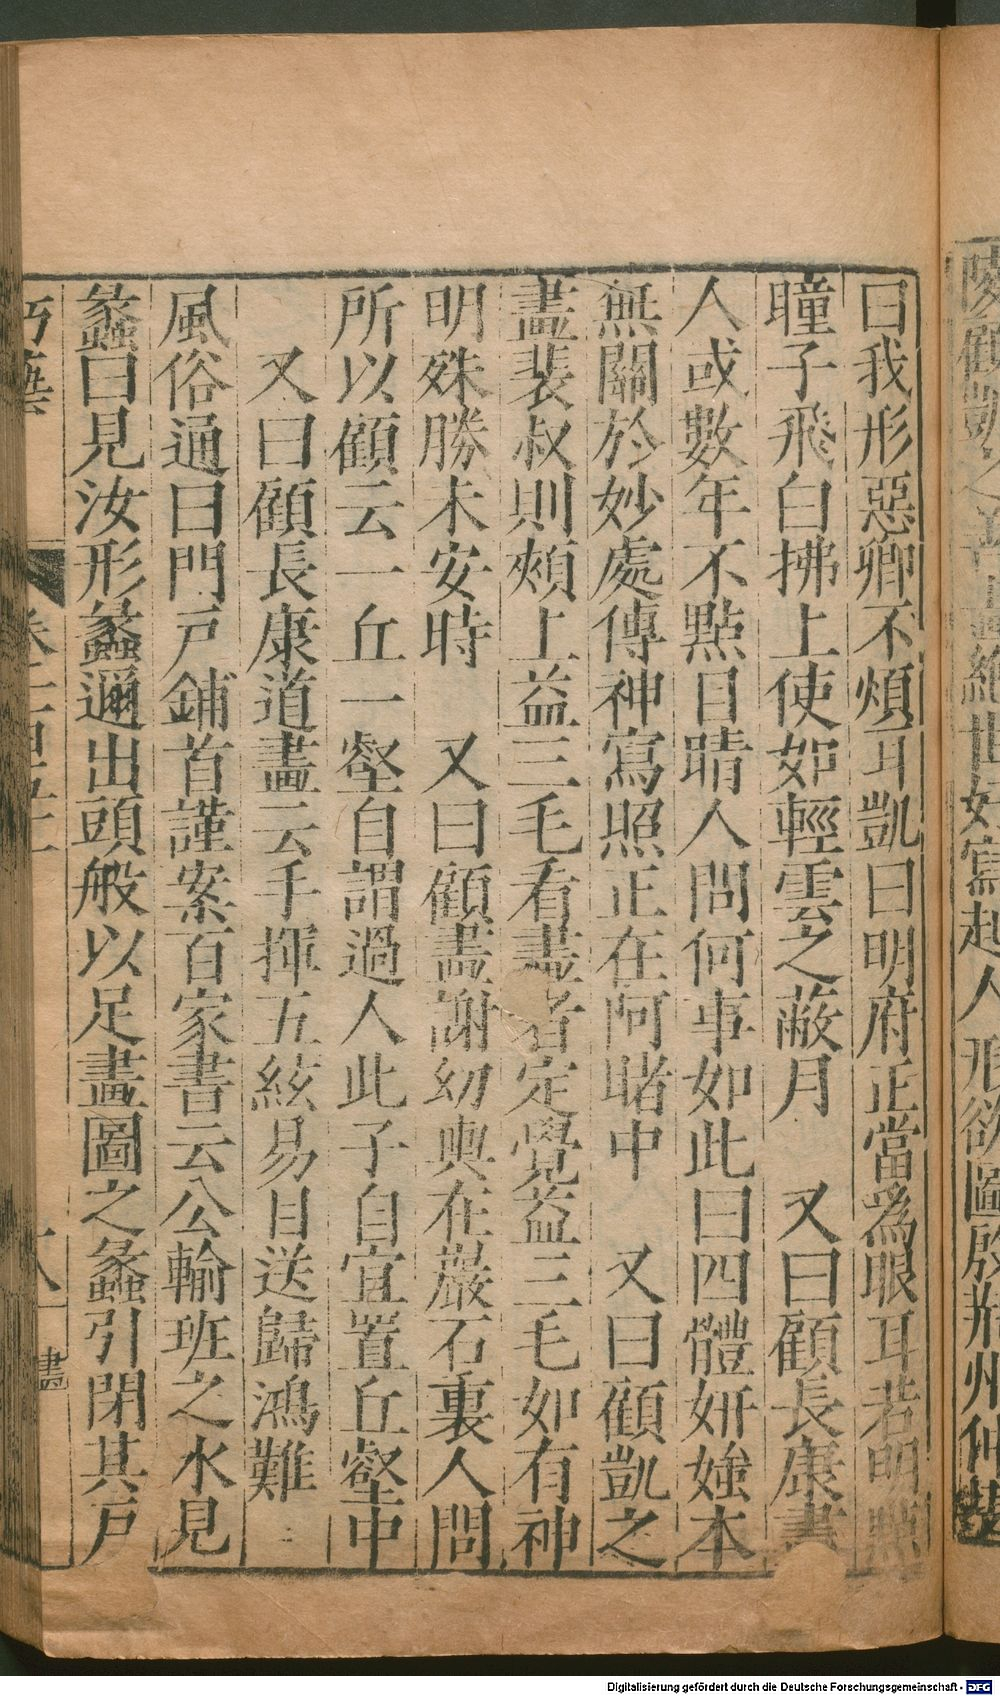 陵顧凱之
絶世好寫起人形欲圖殷荆州仲堪
曰我形惡卿不煩耳凱曰明府正當爲眼耳若明點
瞳子飛白拂上使如輕雲之蔽月　又曰顧長康畫
人或數年不點目睛人問何事如此曰四體妍媸本
無關於妙處傳神寫照正在阿睹中　又曰顧凱之
畫裴叔則頰上益三毛看畫者定覺益三毛如有神
明殊勝未安時　又曰顧畫謝幼輿在巖石裏人問
所以顧云一丘一壑自謂過人此子自宜置丘壑中
又曰顧長康道畫云手揮五絃易目送歸鴻難
風俗通曰門戶鋪首謹案百家書云公輸班之水見
蠡曰見汝形蠡適出頭般以足畫圖之蠡引閉其戶
巧藝
八
畫
Digitalisierung gefördert durch die Deutsche Forschungsgemeinschaft - DFG